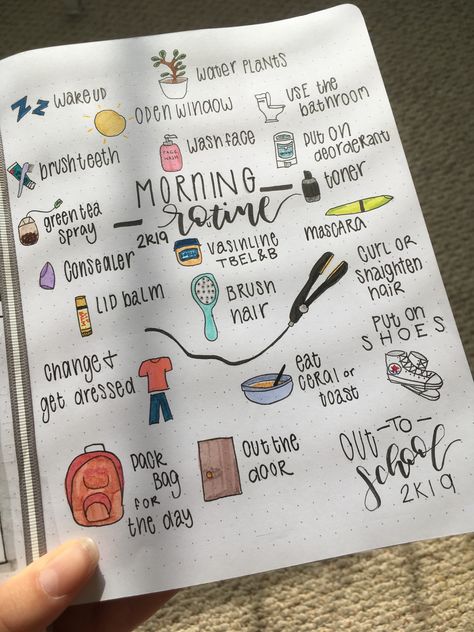 water plants
wake up
open window
use the
bathroom
brush teeth
FACE
WASH
wash face
put on
deorderant
MORNING
rotine
2K19
toner
green tea
spray
mascara
consealer
vasinline
TBEL&B
curl or
straighten
hair
LIP balm
BRUSH
HAIR
put on
SHOES
change +
get dressed
eat
ceral or
toast
pack
bag
for
the day
out the
door
out -TO-
school
2K19